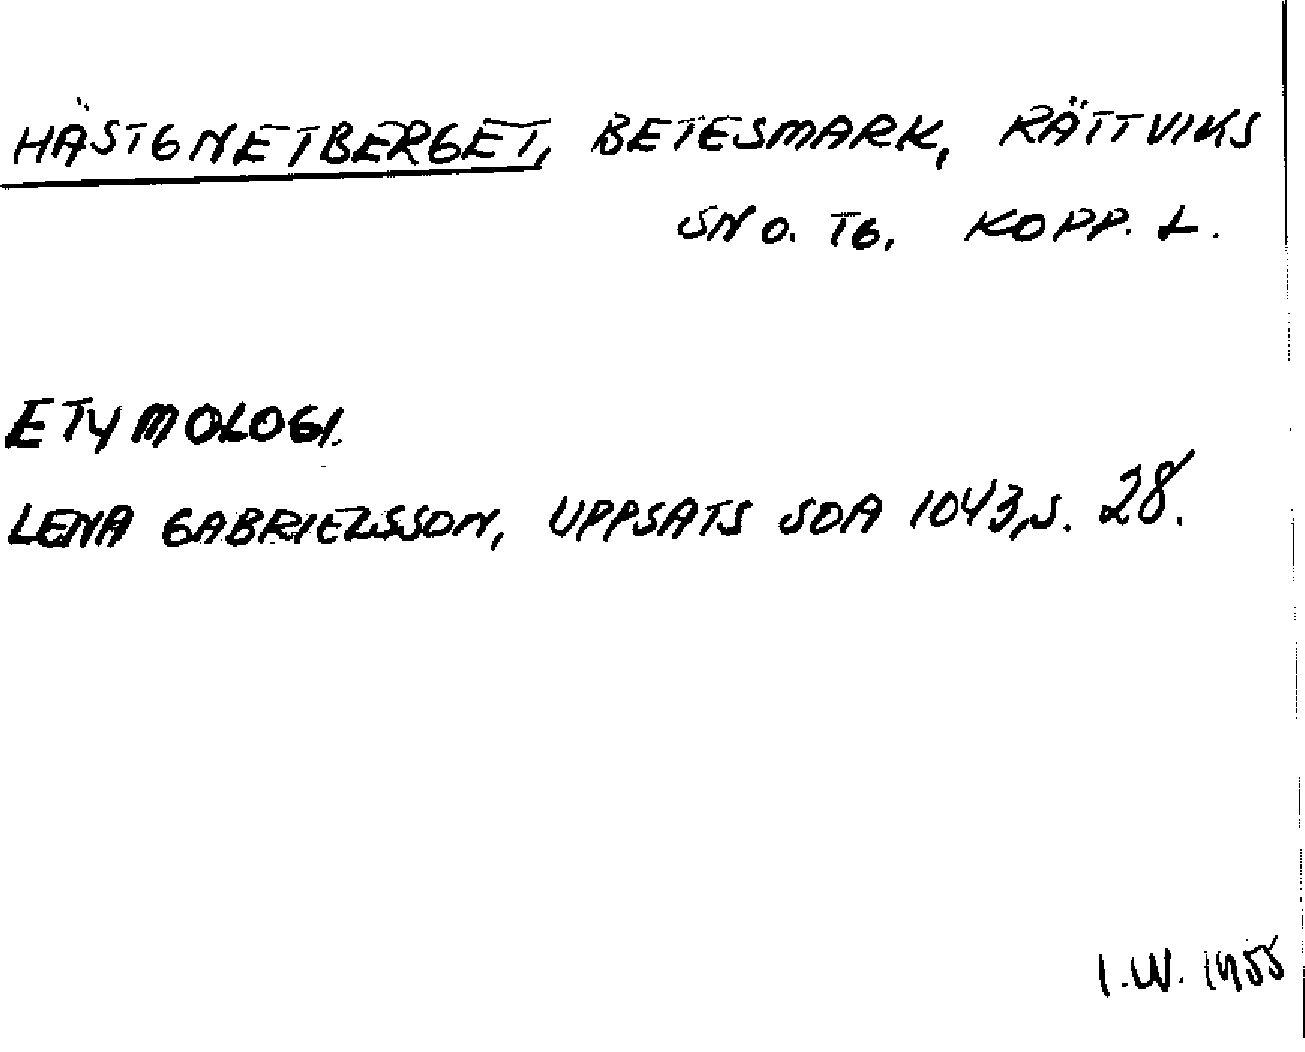 HÄSTGNETBERGET, BETESMARK, RÄTTVIKS
SN O. TG. KOPP. L.
ETYMOLOGI.
LENA GABRIELSSON, UPPSATS SOA 1043, S. 28.
I.W. 1955